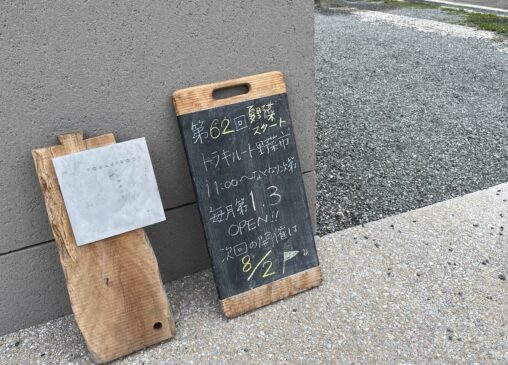 第62回 夏野菜
スタート
トラキルート野菜市
11:00〜なくなり次第
毎月第1.3
OPEN!!
次回の開催は
8/2